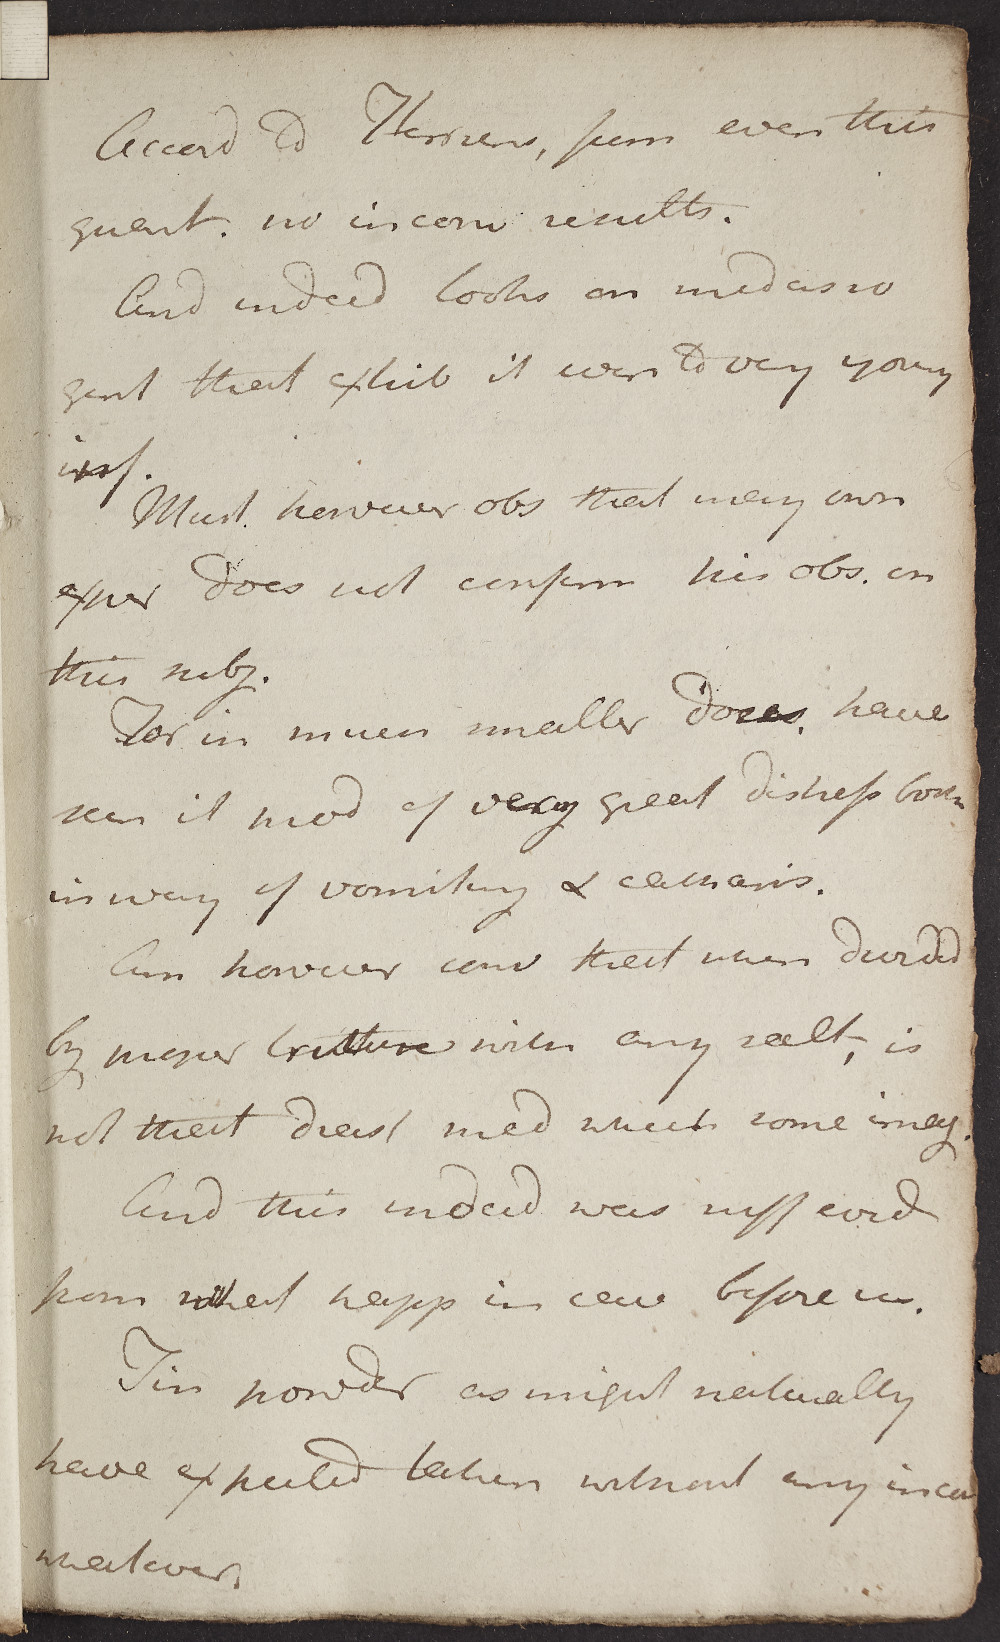 Accord to Herrens, from even this
quant. no incon results.
And indeed looks on med as so
gent that exhib it even to very young
inf.
Must however obs that may own
exper does not confirm his obs. on
this subj.
For in much smaller doses, have
seen it prod of very great distress both
in way of vomiting & catharsis.
Am however conv that when divided
by proper triture with any salt, is
not that drast med which some imag.
And this indeed was suff evid
from what happ in case before us.
Tin powder as might naturally
have expected taken without any incon
whatever.